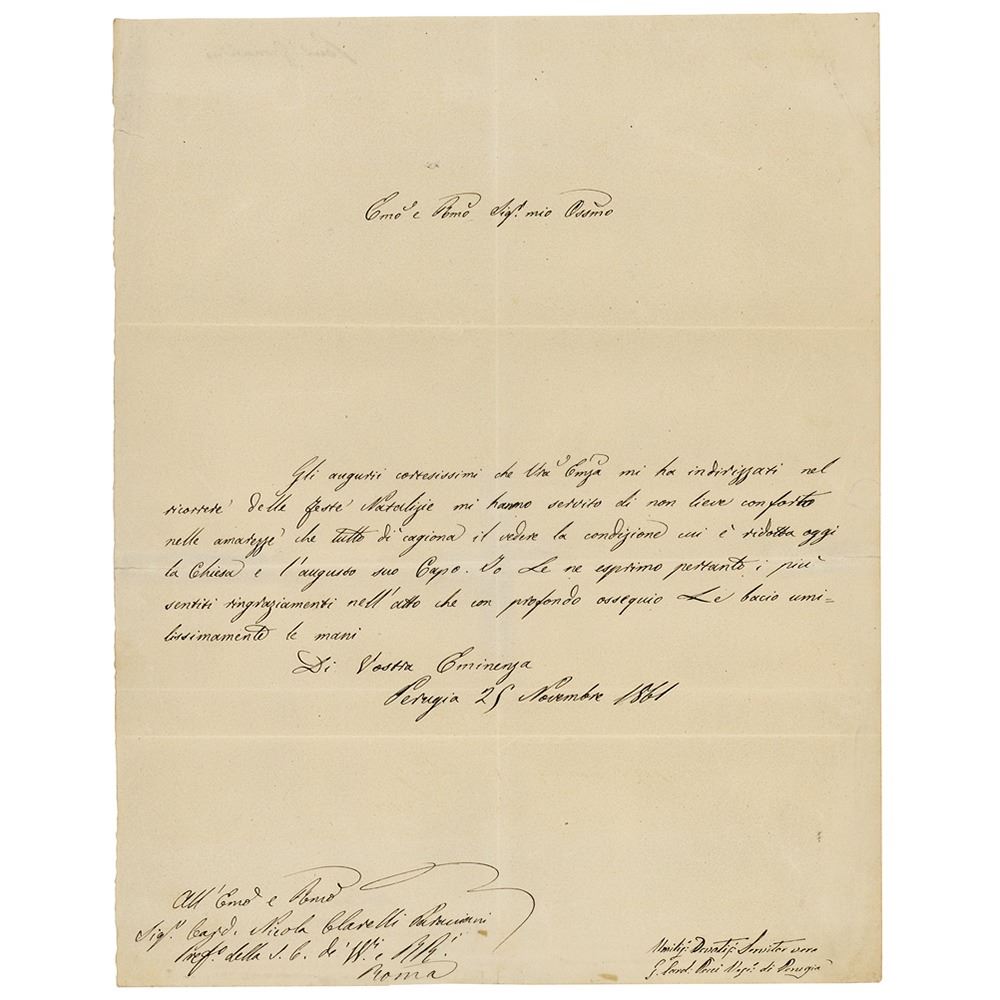 Emo e Rmo Sigr. mio Ossmo
Gli augurii cortesissimi che Vra Emza mi ha indirizzati nel
ricorrere delle feste Natalizie mi hanno servito di non lieve conforto
nelle amarezze che tutto dì cagiona il vedere la condizione cui è ridotta oggi
la Chiesa e l'augusto suo Capo. Io Le ne esprimo pertanto i più
sentiti ringraziamenti nell'atto che con profondo ossequio Le bacio umi=
lissimamente le mani
Di Vostra Eminenza
Perugia 25 Novembre 1861
All'Emo e Rmo
Sigr. Card. Nicola Clarelli Paracciani
Prefo. della S. C. de' VVi. e RRi.
Roma
Umilis. Devotis. Servitor vero
G. Card. Pecci Vesco. di Perugia